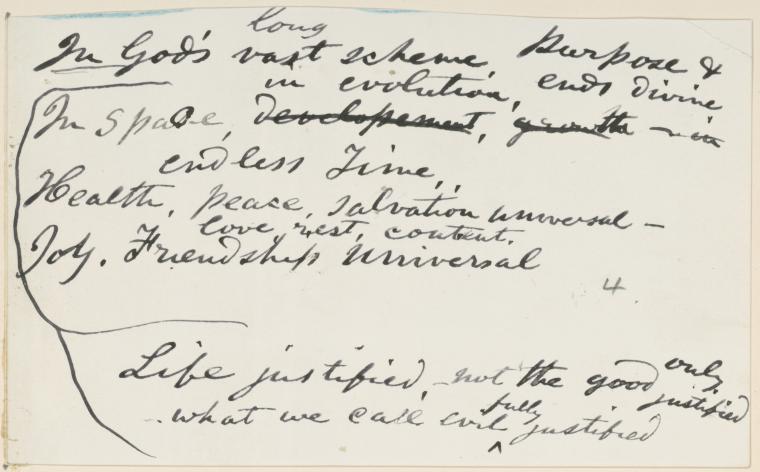 long
In God's vast scheme, Purpose &
in evolution, ends divine
In space, developement, growth - in
endless Time,
Health, peace, salvation universal -
love, rest, content.
Joy. Friendship universal
4
Life justified, not the good only
justified
what we call evil fully justified